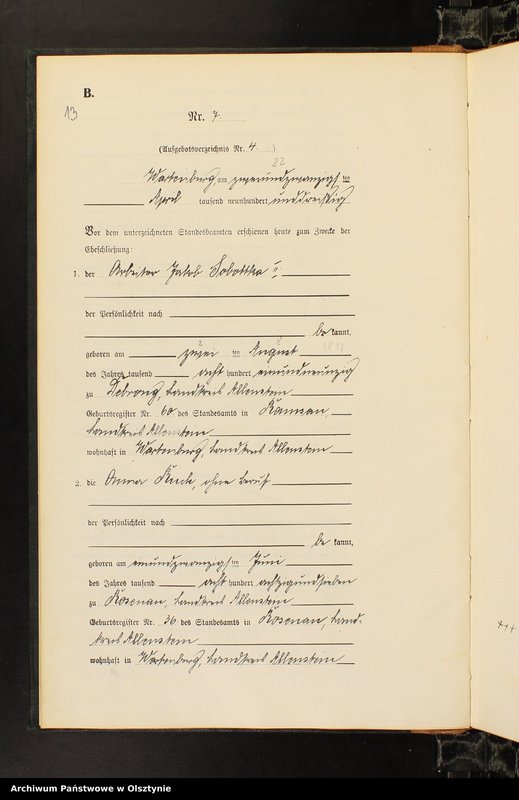 B.
13
Nr. 7
(Aufgebotsverzeichnis Nr. 4 )
22
Wartenburg, am zweiundzwanzigsten
April tausend neunhundert unddreißig
Vor dem unterzeichneten Standesbeamten erschienen heute zum Zwecke der
Eheschließung:
1. der Arbeiter Jakob Sobottka
der Persönlichkeit nach
be kannt,
geboren am zweiten August
1891
des Jahres tausend acht hundert einundneunzig
zu Debrong, Landkreis Allenstein
Geburtsregister Nr. 60 des Standesamts in Ramsau,
Landkreis Allenstein
wohnhaft in Wartenburg, Landkreis Allenstein
2. die Anna, ohne Beruf
der Persönlichkeit nach
be kannt,
geboren am einundzwanzigsten Juni
des Jahres tausend acht hundert
zu Rosenau, Landkreis Allenstein
Geburtsregister Nr. 36 des Standesamts in Rosenau, Land-
kreis Allenstein
wohnhaft in Wartenburg, Landkreis Allenstein
Archiwum Państwowe w Olsztynie